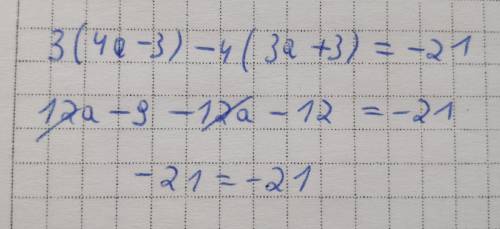 3(4a-3)-4(3a+3)=-21
12a-9-12a-12=-21
-21=-21